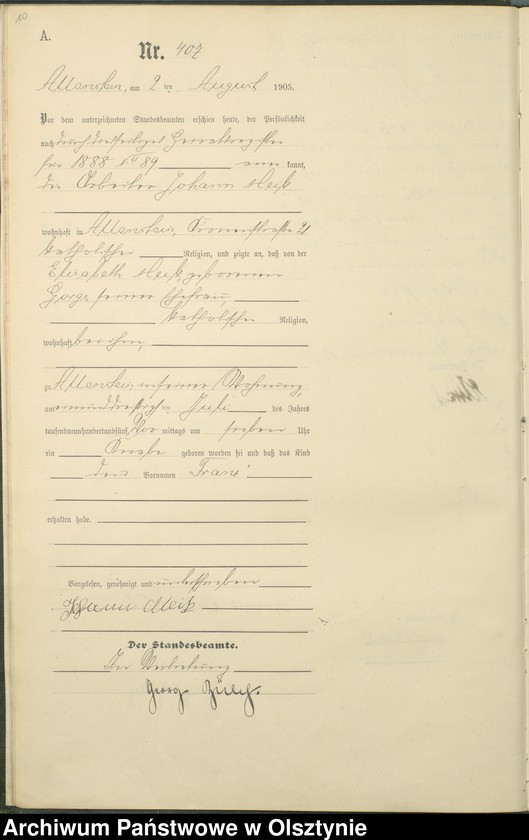 10
A.
Nr. 407
Allenstein, am 2 ten August 1905.
Vor dem unterzeichneten Standesbeamten erschien heute, der Persönlichkeit
nach durch
für 1888 / 89 aner kannt,
der Arbeiter Johann
wohnhaft in Allenstein, 21
katholischer Religion, und zeigte an, daß von der
Elisabeth geborenen
seiner Ehefrau
katholischer Religion,
wohnhaft bei ihm,
zu Allenstein, in seiner Wohnung,
am einunddreißigsten Juli des Jahres
tausendneunhundertundfünf, Vor mittags um sieben Uhr
ein Knabe geboren worden sei und daß das Kind
den Vornamen Franz
erhalten habe.
Vorgelesen, genehmigt und unterschrieben
Johann
Der Standesbeamte.
In Vertretung
Georg
Archiwum Państwowe w Olsztynie